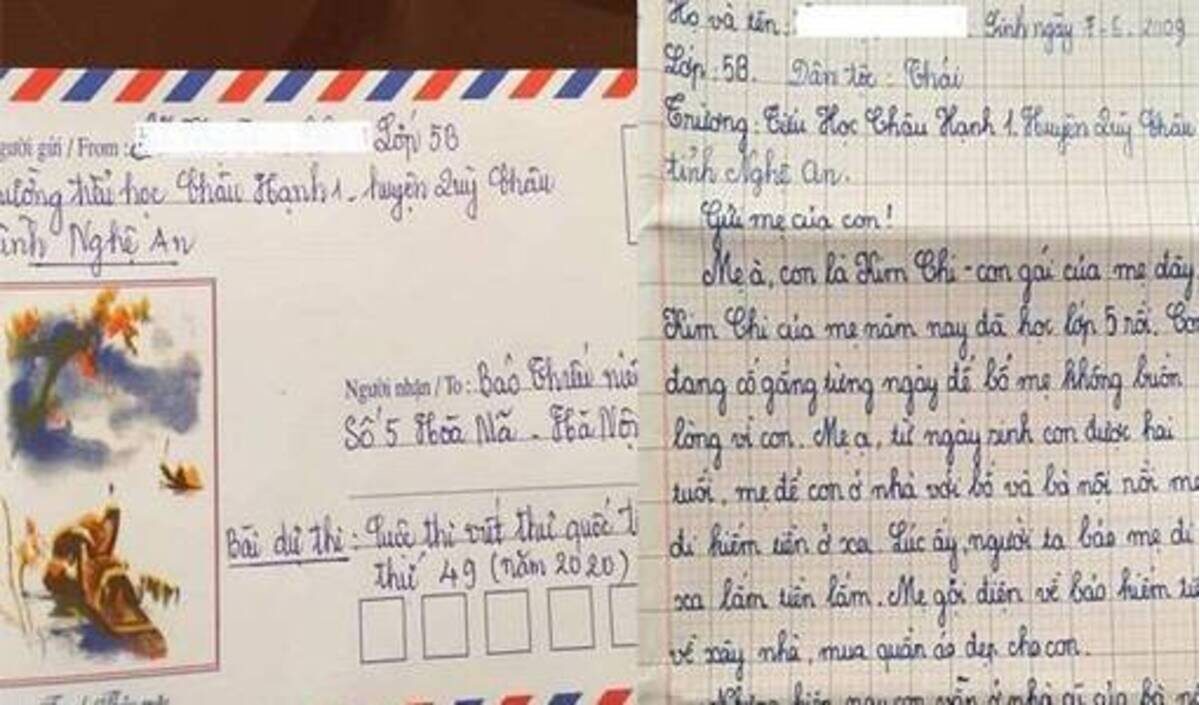 gười gửi / From : Lớp 5B
ường tiểu học Châu Hạnh 1 - huyện Quỳ Châu
ỉnh Nghệ An
Người nhận / To : Báo Thiếu niê
Số 5 Hoà Mã - Hà Nội
Bài dự thi : Cuộc thi viết thư quốc t
thứ 49 (năm 2020)
Họ và tên : . Sinh ngày 7-5-2009
Lớp : 5B. Dân tộc : Thái
Trường : Tiểu Học Châu Hạnh 1. Huyện Quỳ Châu
tỉnh Nghệ An.
Gửi mẹ của con!
Mẹ à, con là Kim Chi - con gái của mẹ đây
Kim Chi của mẹ năm nay đã học lớp 5 rồi. Con
đang cố gắng từng ngày để bố mẹ không buồn
lòng vì con. Mẹ ạ, từ ngày sinh con được hai
tuổi, mẹ để con ở nhà với bố và bà nội rồi mẹ
đi kiếm tiền ở xa. Lúc ấy, người ta bảo mẹ đi
xa lắm tiền lắm. Mẹ gọi điện về bảo kiếm tiề
về xây nhà, mua quần áo đẹp cho con.
Nhưng hiện nay con vẫn ở nhà gỗ của bà nộ